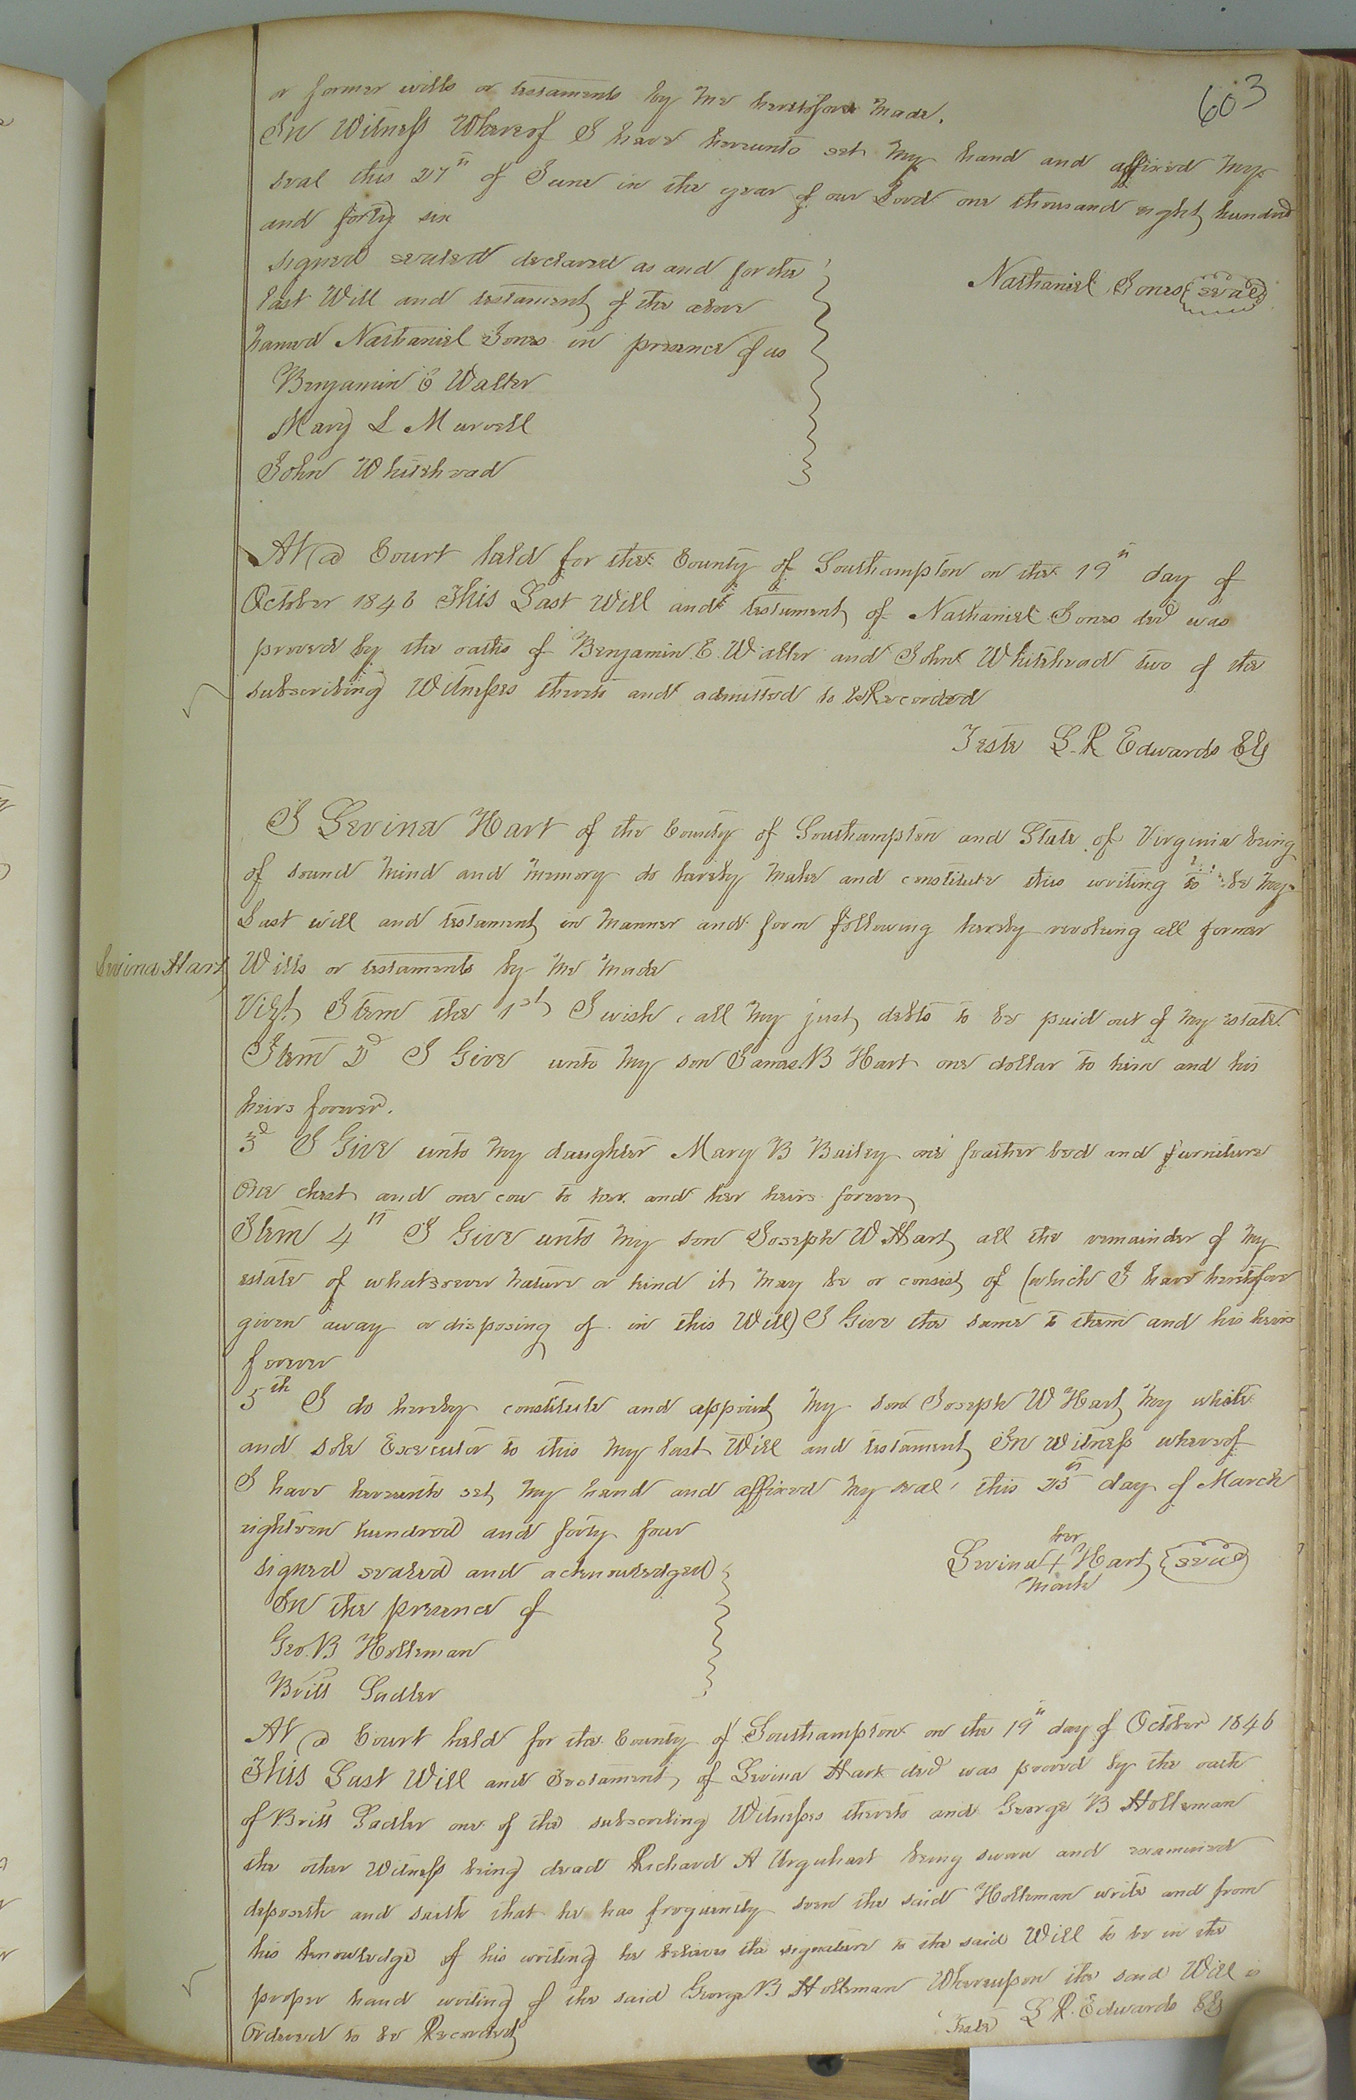 603
or former wills or testaments by me heretofore made.
In Witness Whereof I have hereunto set my hand and affixed my
seal this 27th of June in the year of our Lord one thousand eight hundred
and forty six
signed sealed declared as and for the
last Will and testament of the above
named Nathaniel Jones in presence of us
Nathaniel Jones seal
Benjamin E Waller
Mary L Murrell
John Whitehead
At a Court held for the County of Southampton on the 19th day of
October 1846 This Last Will and testament of Nathaniel Jones decd was
proved by the oaths of Benjamin E. Waller and John Whitehead two of the
subscribing Witnesses thereto and admitted to be Recorded
Teste L. R Edwards Clk
I Levina Hart of the County of Southampton and State of Virginia being
of sound mind and memory do hereby make and constitute this writing to be my
Last will and testament in manner and form following hereby revoking all former
Levina Hart
Wills or testaments by me made
Vizt Item the 1st I wish all my just debts to be paid out of my estate.
Item 2d I Give unto my son James. B Hart one dollar to him and his
heirs forever.
3d I Give unto my daughter Mary B Bailey one feather bed and furniture
One chest and one cow to her and her heirs forever
Item 4th I Give unto my son Joseph W Hart all the remainder of my
estate of whatsoever nature or kind it may be or consist of (which I have heretofore
given away or disposing of in this Will) I Give the same to them and his heirs
forever
5th I do hereby constitute and appoint my son Joseph W Hart my whole
and sole Executor to this my last Will and testament In Witness whereof
I have hereunto set my hand and affixed my seal this 25th day of March
eighteen hundred and forty four
signed sealed and acknowledged
In the presence of
her
Levina + Hart seal
mark
Geo. B Holleman
Britt Sadler
At a Court held for the County of Southampton on the 19th day of October 1846
This Last Will and Testament of Levina Hart decd was proved by the oath
of Britt Sadler one of the subscribing Witnesses thereto and George B Holleman
the other Witness being dead Richard A Urquhart being sworn and examined
deposeth and saith that he has frequently seen the said Holleman write and from
his knowledge of his writing he believes the signature to the said Will to be in the
proper hand writing of the said George B Holleman Whereupon the said Will is
Ordered to be Recorded
Teste L. R. Edwards Clk